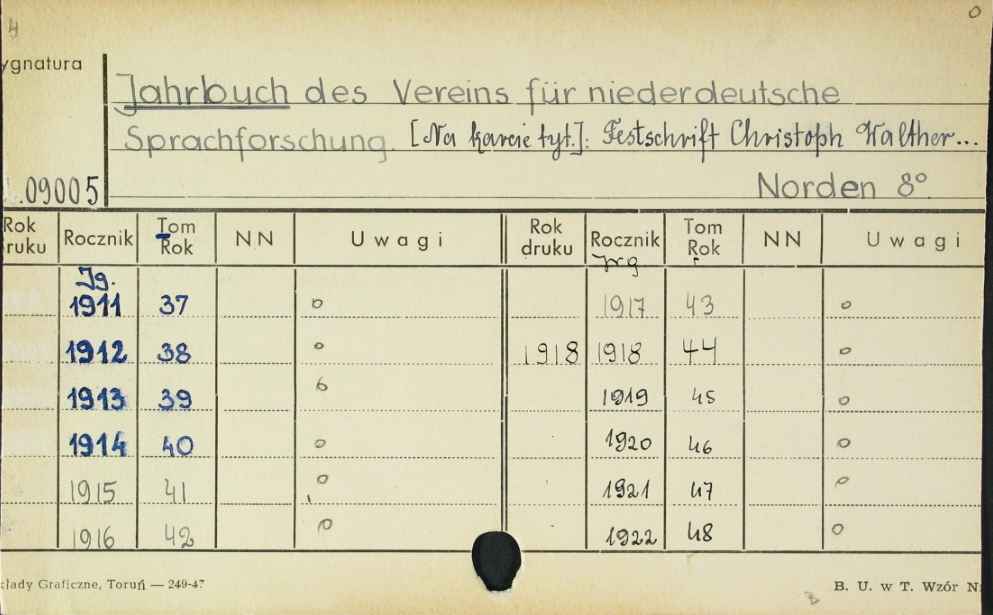 4
0
ygnatura
Jahrbuch des Vereins für niederdeutsche
Sprachforschung. [Na karcie tyt.]: Festschrift Christoph Walther...
.09005
Norden 8°
Rok druku Rocznik Tom Rok NN Uwagi Rok druku Rocznik Tom Rok NN Uwagi
Jg. Jrg
1911 37 o 1917 43 o
1912 38 o 1918 1918 44 o
1913 39 o 1919 45 o
1914 40 o 1920 46 o
1915 41 o 1921 47 o
1916 42 o 1922 48 o
łady Graficzne, Toruń — 249-47
B. U. w T. Wzór N